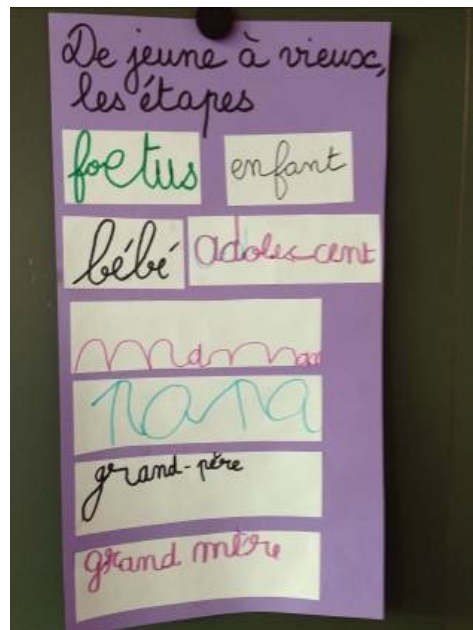 De jeune à vieux,
les étapes
foetus enfant
bébé adolescent
maman
papa
grand-père
grand mère